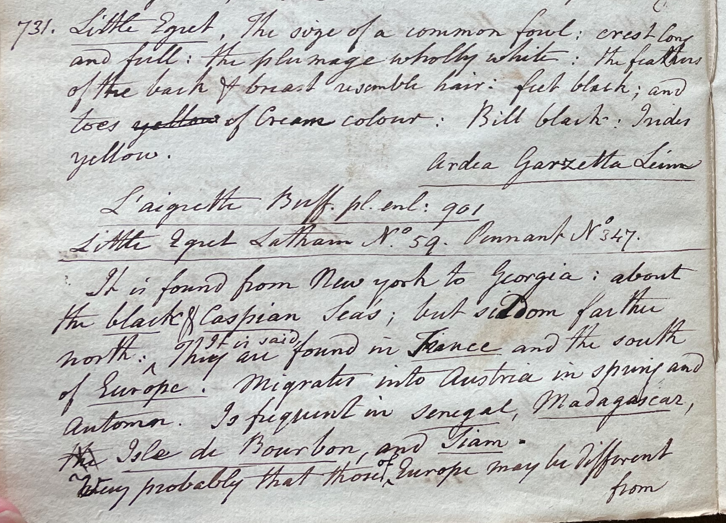 731. Little Egret, The size of a common fowl: crest long
and full: the plumage wholly white: the feathers
of the back & breast resemble hair: feet black; and
toes yellow of Cream colour: Bill black: Irides
yellow.
Ardea Garzetta Linn
L'aigrette Buff. pl. enl: 901
Little Egret Latham No. 59. Pennant No 347.
It is found from New york to Georgia: about
the black & Caspian Seas; but seldom farther
north: It is said They are found in France and the south
of Europe. Migrates into Austria in spring and
Automn. Is frequent in Senegal, Madagascar,
the Isle de Bourbon, and Siam.
Very probably that those of Europe may be different
from